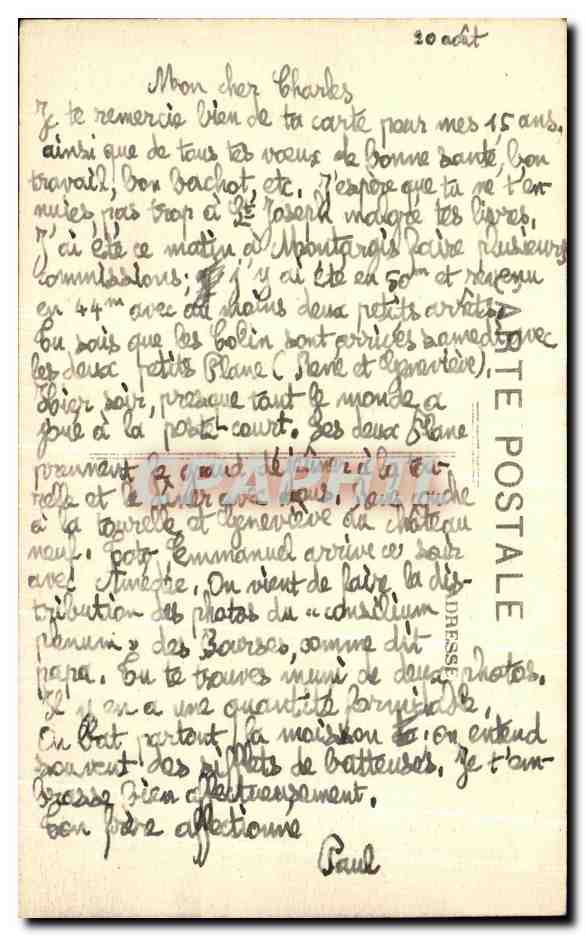 20 août
Mon cher Charles
Je te remercie bien de ta carte pour mes 15 ans.
ainsi que de tous tes voeux de bonne santé, bon
travail, bon bachot, etc. J'espère que tu ne t'en-
nuies pas trop à St Joseph malgré tes livres.
J'ai été ce matin à Montargis faire plusieurs
commissions; j'y ai été en 50m et revenu
en 44m avec au moins deux petits arrêts.
Tu sais que les Colin sont arrivés samedi avec
les deux petits Plane (René et Geneviève).
Hier soir, presque tout le monde a
joué à la poste-court. Les deux Plane
prennent le grand déjeuner à la tou-
relle et le dîner avec nous. René couche
à la tourelle et Geneviève au château
neuf. Emmanuel arrive ce soir
avec . On vient de faire la dis-
tribution des photos du "consilium
" des Bourses, comme dit
papa. Tu te trouves muni de deux photos.
Il y en a une quantité formidable.
On bat partout la moisson on entend
souvent des sifflets de batteuses. Je t'em-
brasse bien affectueusement.
Ton frère affectionné
Paul
CARTE POSTALE
ADRESSE
CPAPHIL